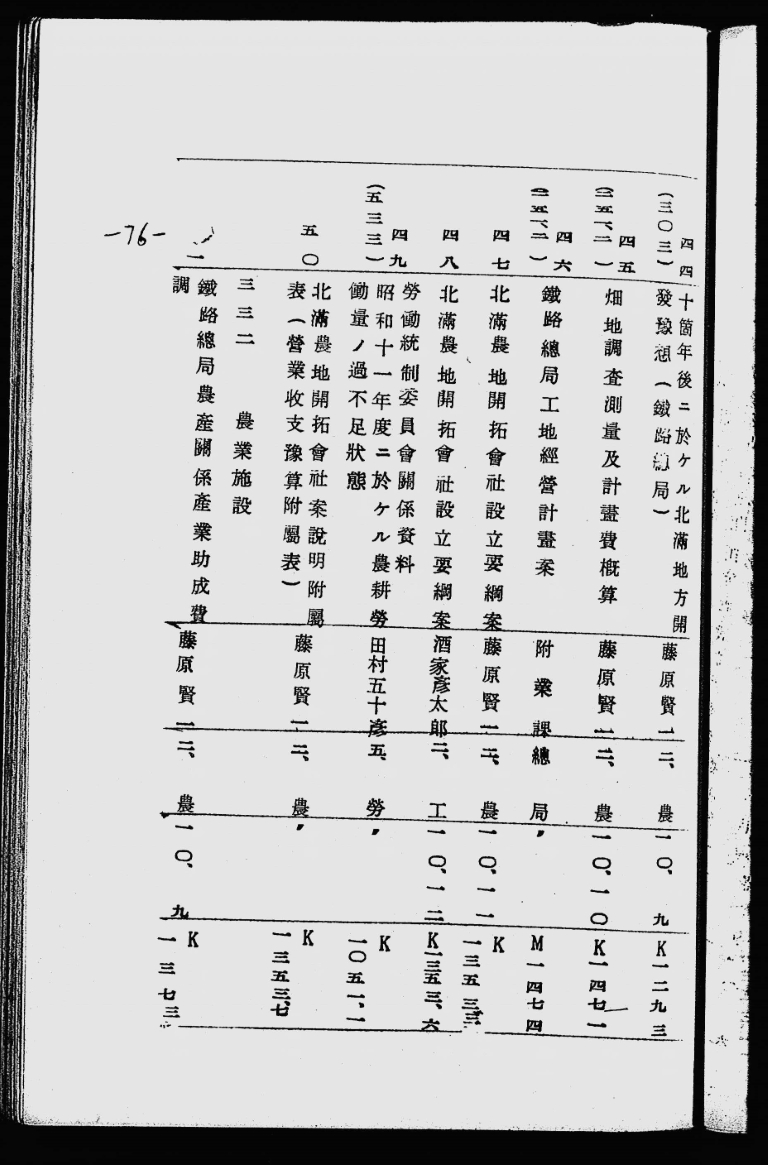 四四 十箇年後ニ於ケル北滿地方開 藤原賢一 二、農 一〇、九 K一二九三
(三〇三) 發豫想(鐵路總局)
四五 畑地調査測量及計畫費槪算 藤原賢一 二、農 一〇、一〇 K一四七一
四六 鐵路總局工地經營計畫案 附業課 總局 〃 M一四七四
四七 北滿農地開拓會社設立要綱案 藤原賢一 二、農 一〇、一一 K一三五三、三
四八 北滿農地開拓會社設立要綱案 酒家彥太郎 二、工 一〇、一二 K一三五三、六
四九 勞働統制委員會關係資料
(五三三) 昭和十一年度ニ於ケル農耕勞 田村五十彥 五、勞 〃 K一〇五一、一
働量ノ過不足狀態
五〇 北滿農地開拓會社案說明附屬 藤原賢一 二、農 〃 K一三五三、七
表(營業收支豫算附屬表)
三三二 農業施設
一 鐵路總局農產關係產業助成費 藤原賢一 二、農 一〇、九 K一三七三
調
-76-